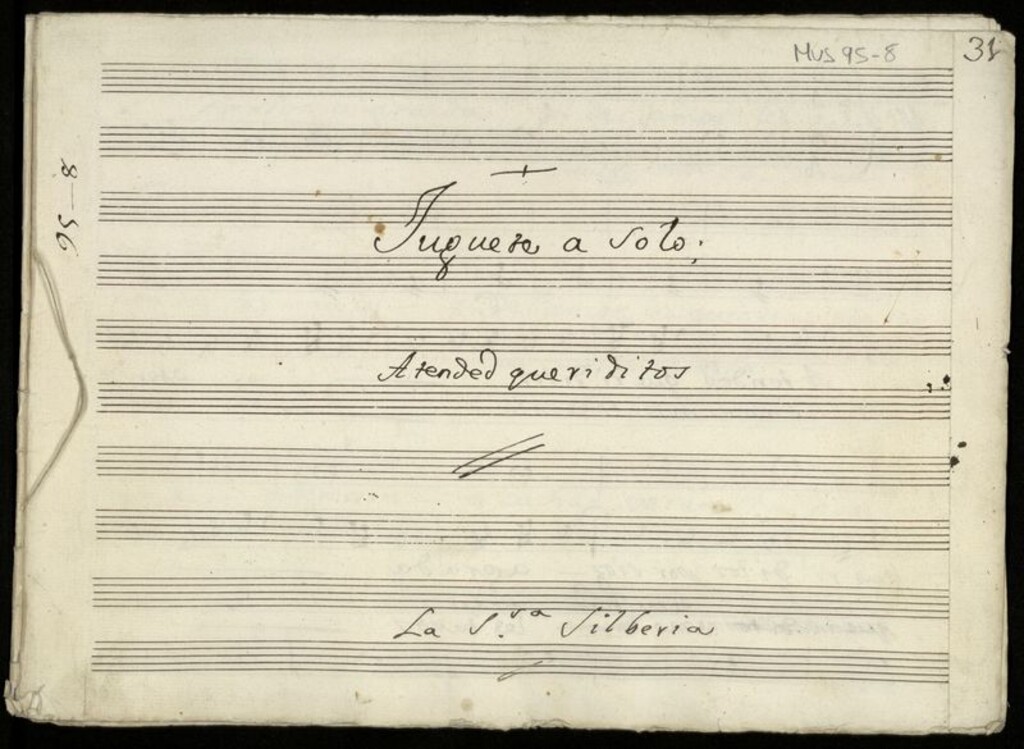 Mus 95-8
31
95-8
Juguete a Solo;
Atended queriditos
La S.ra Silberia